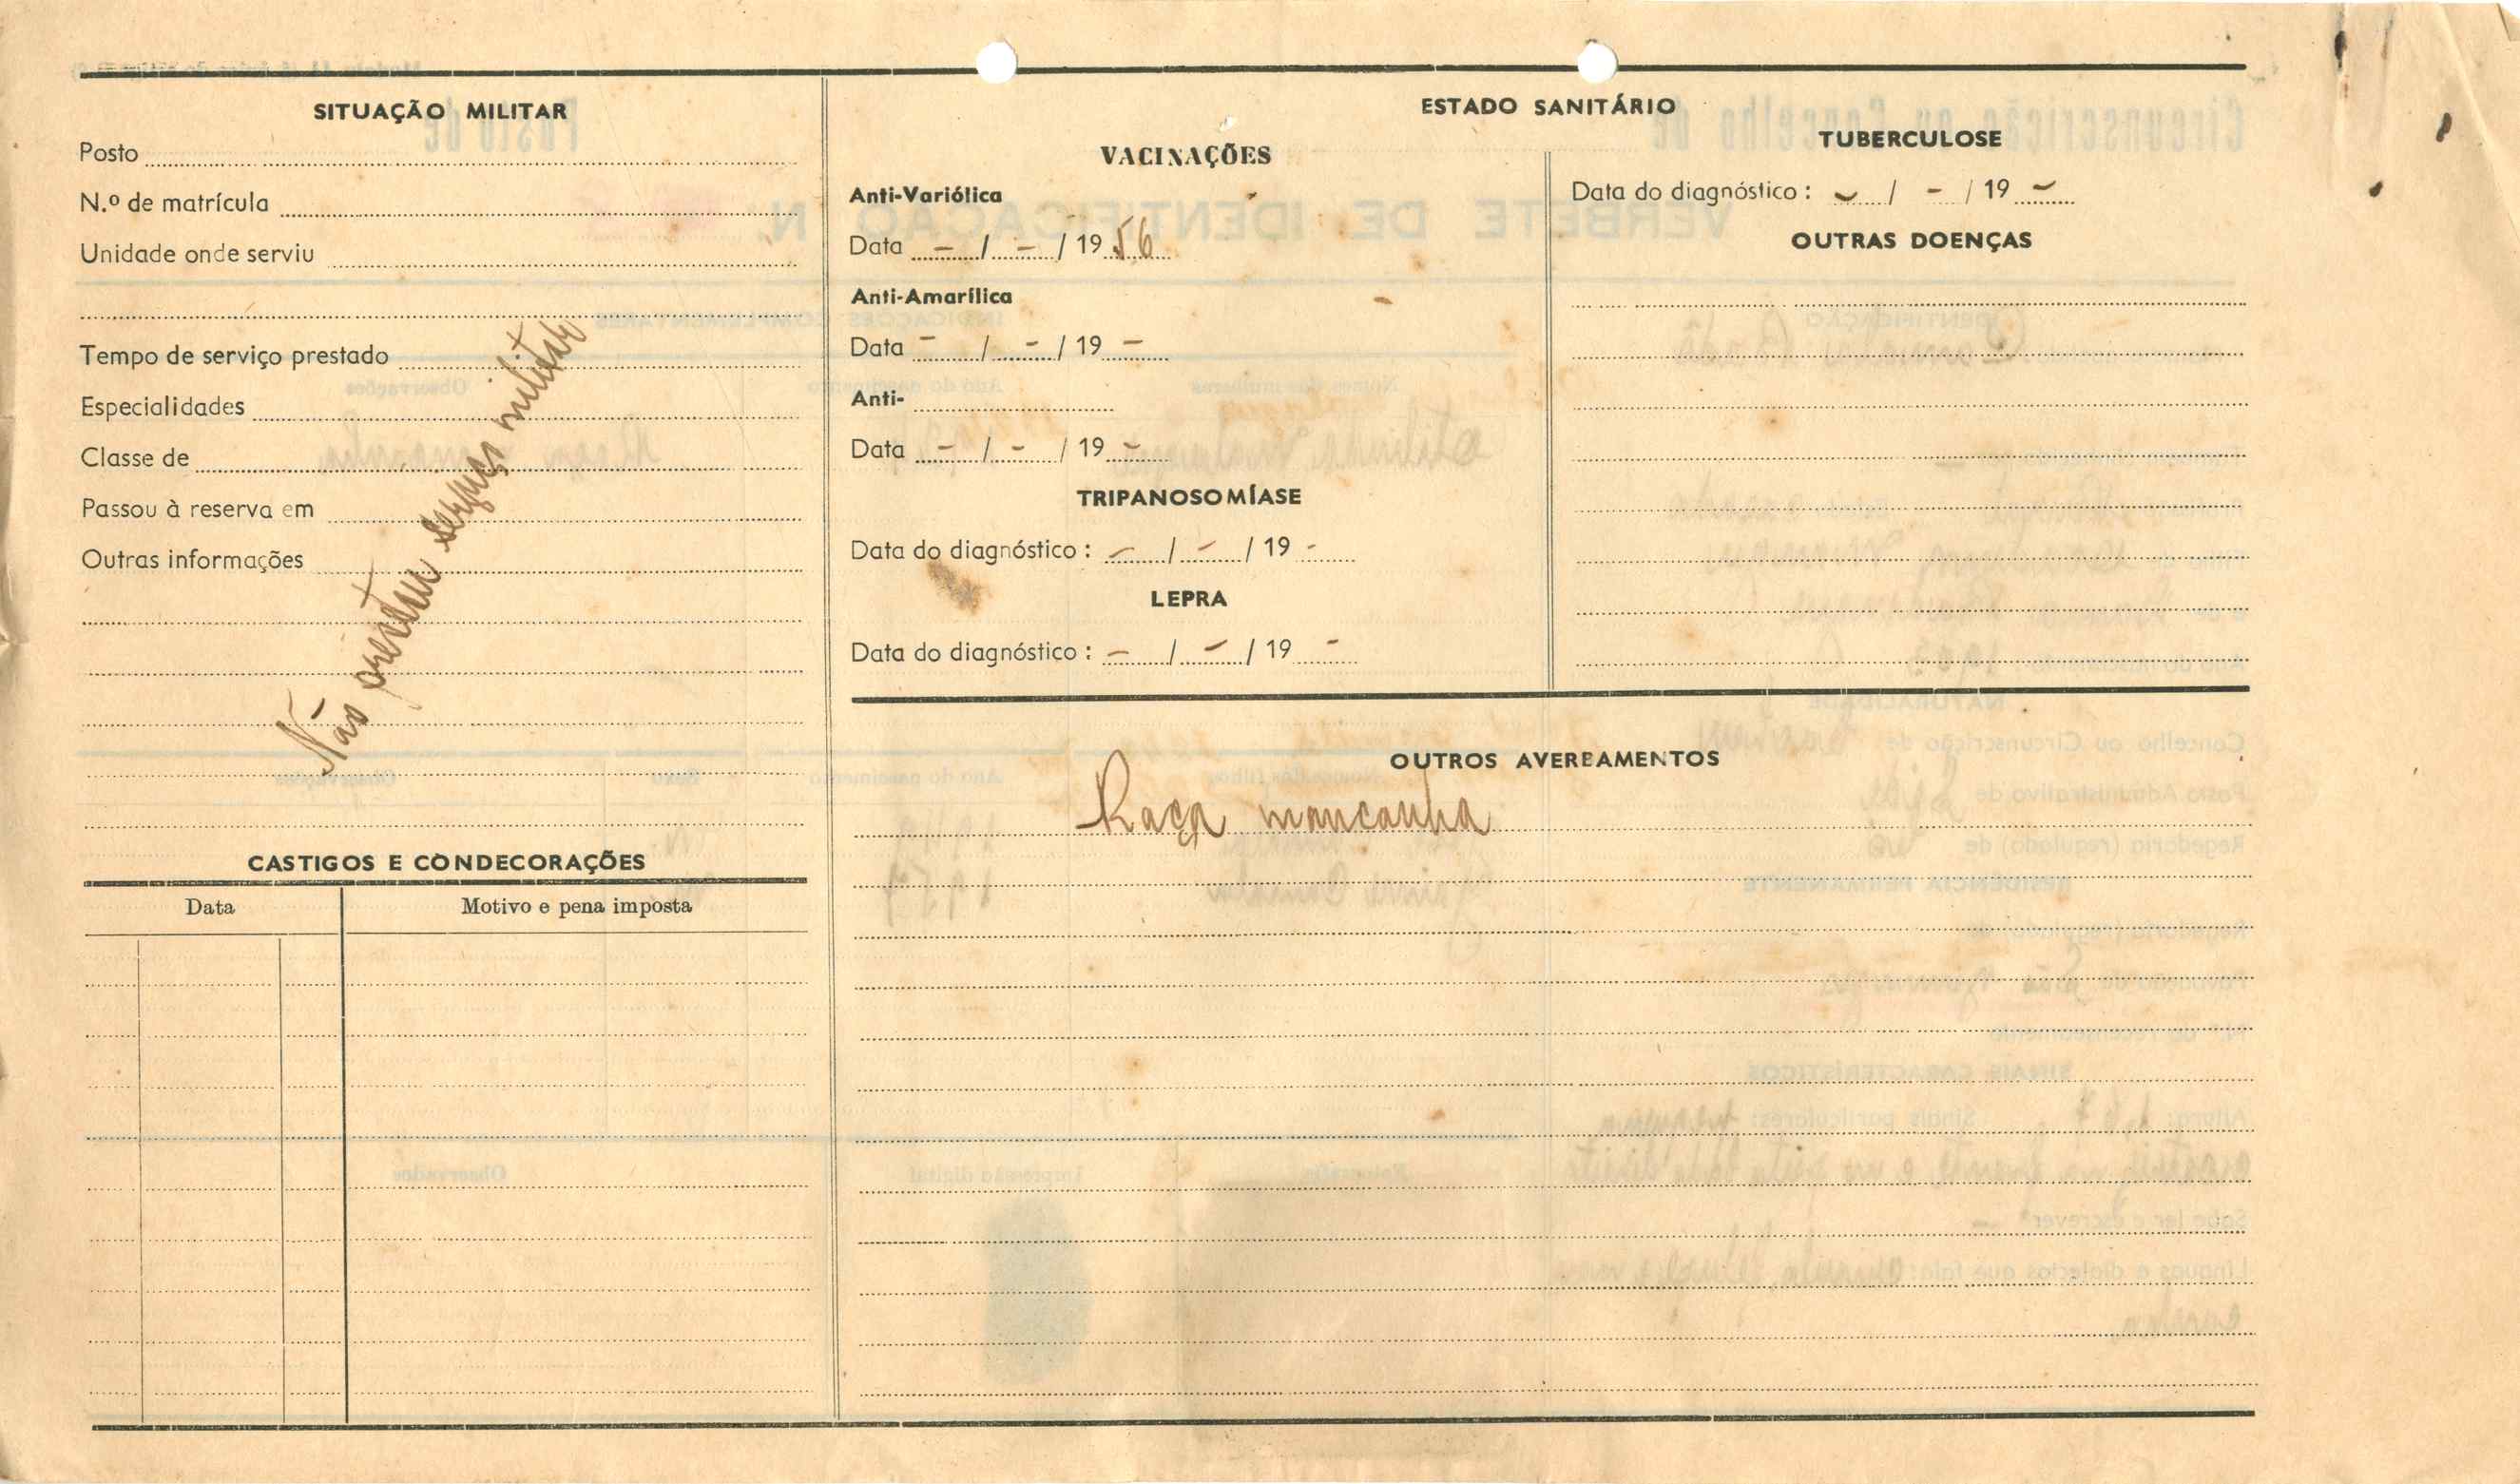 SITUAÇÃO MILITAR
Posto
N.º de matrícula
Unidade onde serviu
Tempo de serviço prestado
Especialidades
Classe de
Passou à reserva em
Outras informações
Não prestou serviço militar
CASTIGOS E CONDECORAÇÕES
Data Motivo e pena imposta
ESTADO SANITÁRIO
VACINAÇÕES
Anti-Variólica
Data - / - / 19 56
Anti-Amarílica
Data - / - / 19 -
Anti-
Data - / - / 19 -
TRIPANOSOMÍASE
Data do diagnóstico : - / - / 19 -
LEPRA
Data do diagnóstico : - / - / 19 -
TUBERCULOSE
Data do diagnóstico : - / - / 19 -
OUTRAS DOENÇAS
OUTROS AVERBAMENTOS
Raça mancanha